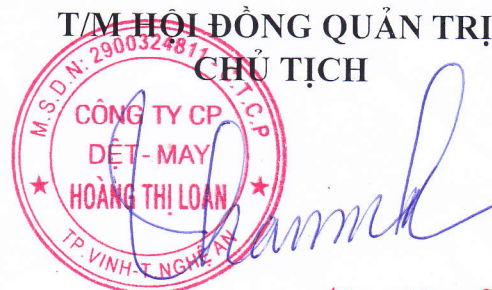 T/M HỘI ĐỒNG QUẢN TRỊ
CHỦ TỊCH
M.S.D.N: 2900324811 C.T.C.P
CÔNG TY CP
DỆT - MAY
HOÀNG THỊ LOAN
TP.VINH-T.NGHỆ AN